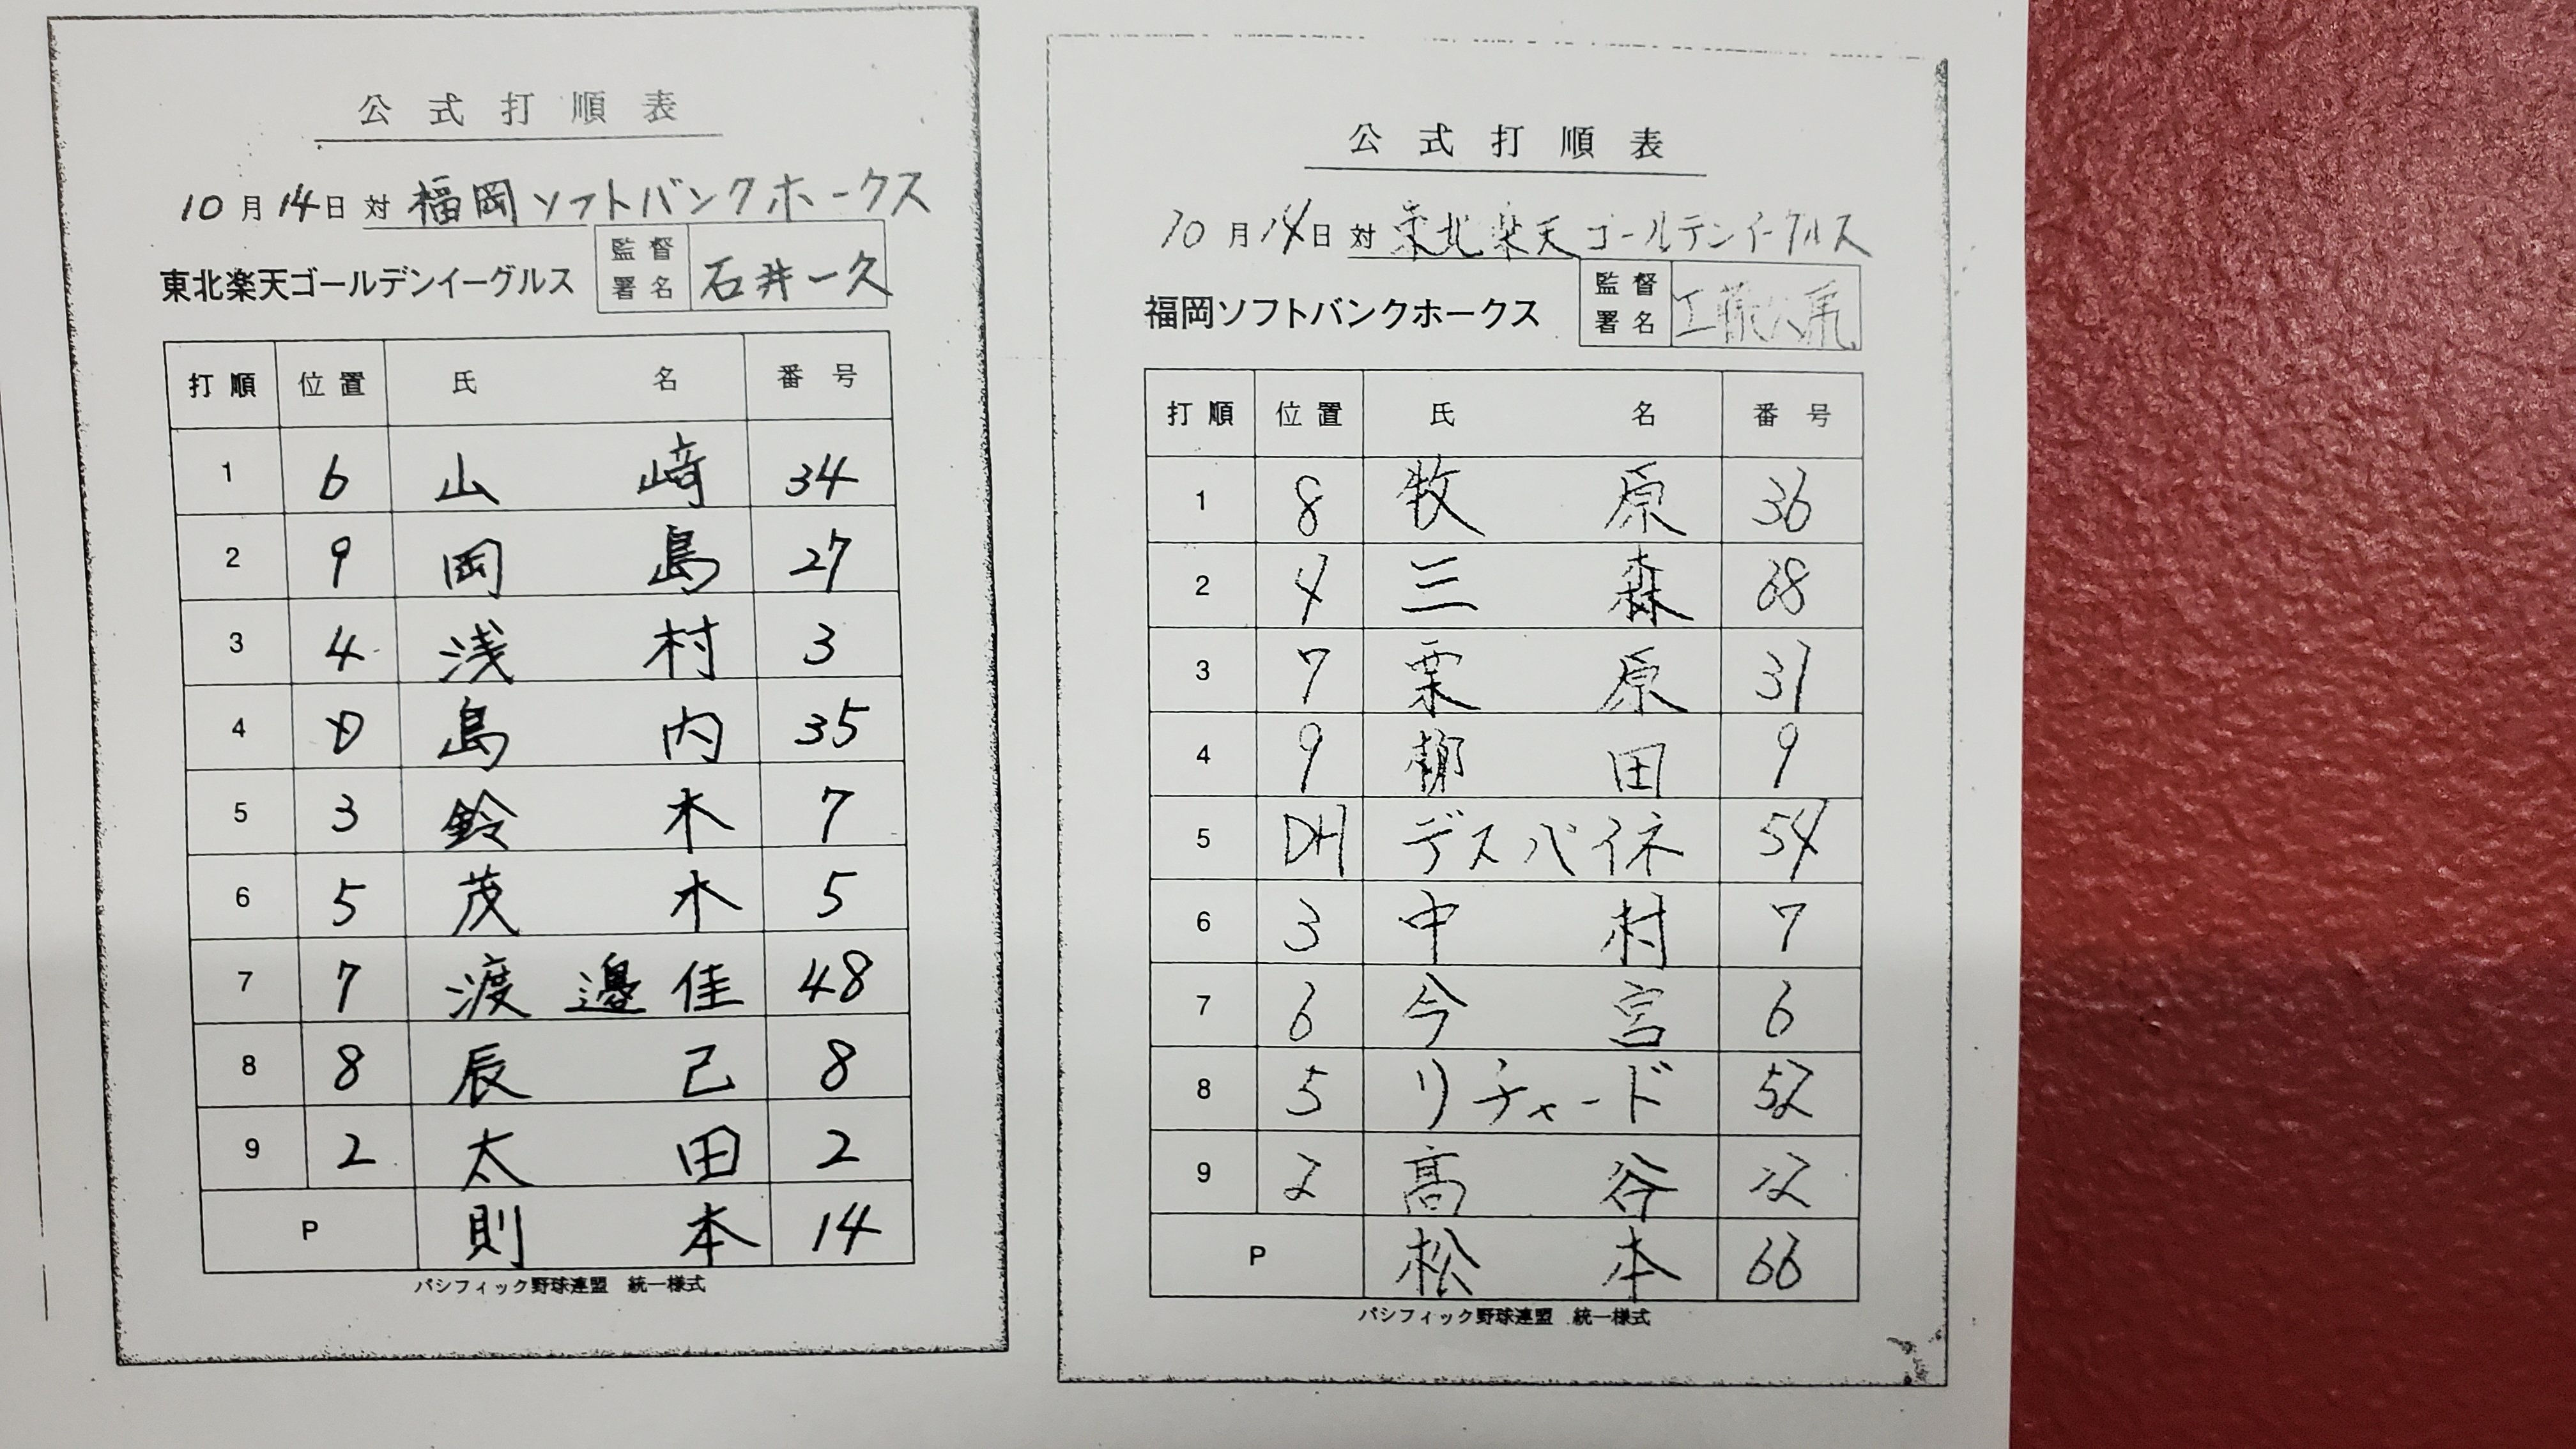 公式打順表
10月14日 対 福岡ソフトバンクホークス
東北楽天ゴールデンイーグルス 監督署名 石井一久
打順 位置 氏名 番号
1 6 山﨑 34
2 9 岡島 27
3 4 浅村 3
4 D 島内 35
5 3 鈴木 7
6 5 茂木 5
7 7 渡邊佳 48
8 8 辰己 8
9 2 太田 2
P 則本 14
パシフィック野球連盟 統一様式
公式打順表
10月14日 対 東北楽天ゴールテンイーグルス
福岡ソフトバンクホークス 監督署名 工藤公康
打順 位置 氏名 番号
1 8 牧原 36
2 4 三森 68
3 7 栗原 31
4 9 柳田 9
5 DH デスパイネ 54
6 3 中村 7
7 6 今宮 6
8 5 リチャード 52
9 2 髙谷 12
P 松本 66
パシフィック野球連盟 統一様式